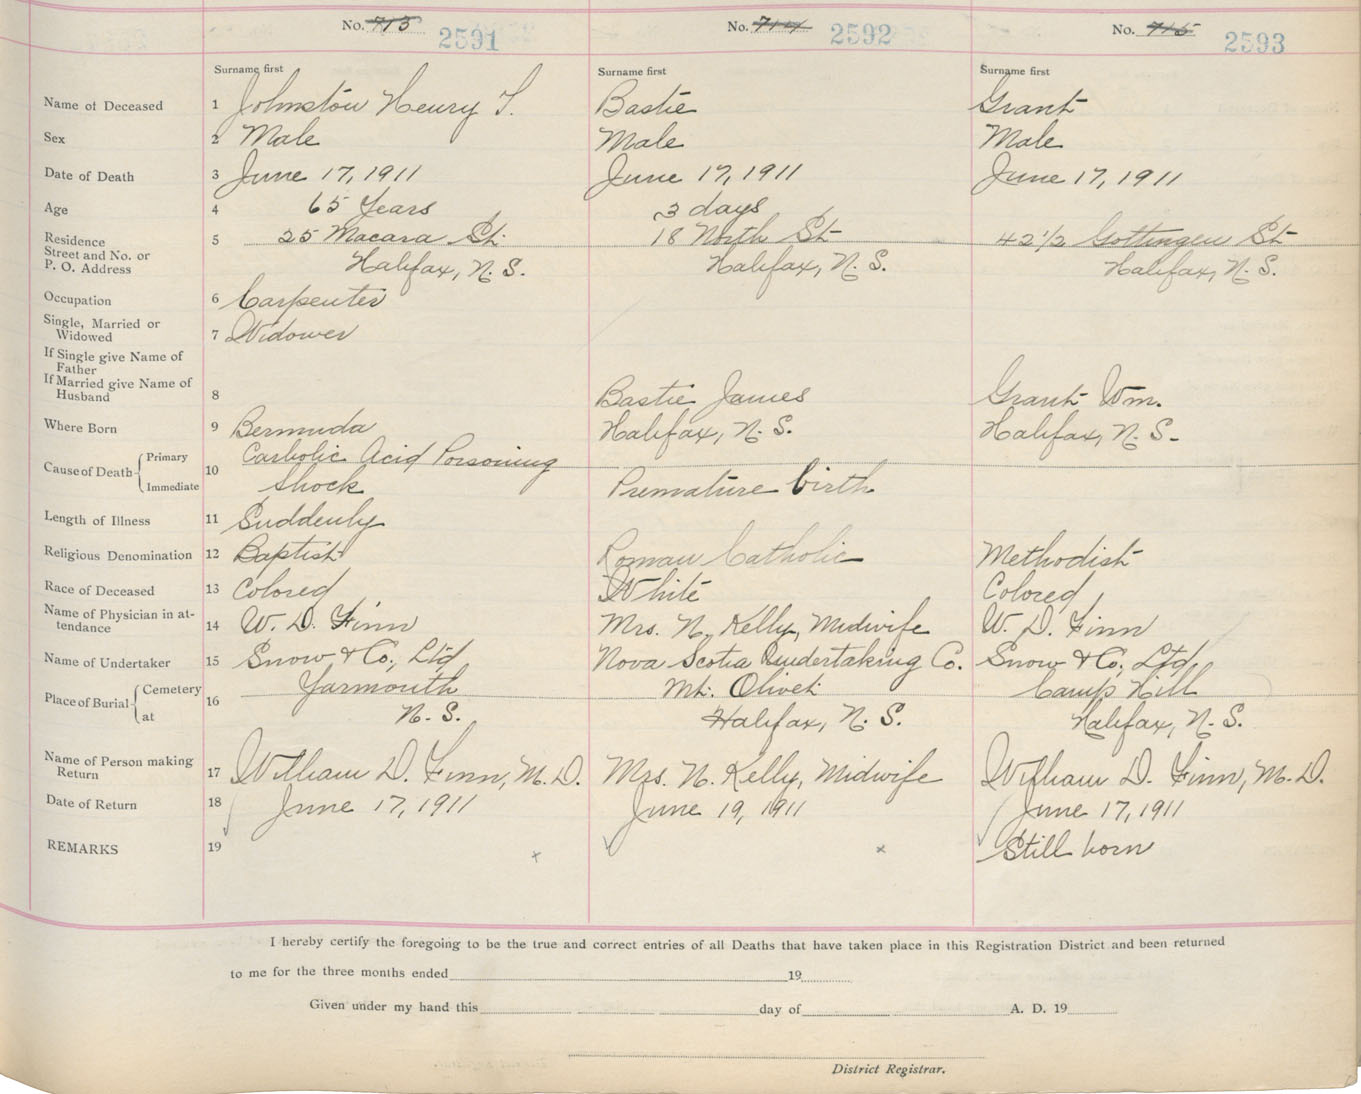 No. 713 2591 No. 714 2592 No. 715 2593
Surname first Surname first Surname first
Name of Deceased 1 Johnston Henry T. Bastie Grant
Sex 2 Male Male Male
Date of Death 3 June 17, 1911 June 17, 1911 June 17, 1911
Age 4 65 Years 3 days
Residence 5 25 Macara St. 18 North St 42 1/2 Gottingen St
Street and No. or
P. O. Address Halifax, N. S. Halifax, N. S. Halifax, N. S.
Occupation 6 Carpenter
Single, Married or
Widowed 7 Widower
If Single give Name of
Father
If Married give Name of
Husband 8 Bastie James Grant Wm.
Where Born 9 Bermuda Halifax, N. S. Halifax, N. S.
Cause of Death Primary 10 Carbolic Acid Poisoning
Immediate Shock Premature birth
Length of Illness 11 Suddenly
Religious Denomination 12 Baptist Roman Catholic Methodist
Race of Deceased 13 Colored White Colored
Name of Physician in at-
tendance 14 W. D. Finn Mrs. N. Kelly, Midwife W. D. Finn
Name of Undertaker 15 Snow & Co., Ltd Nova Scotia Undertaking Co. Snow & Co., Ltd,
Place of Burial Cemetery 16 Yarmouth Mt. Olivet Camp Hill
at N. S. Halifax, N. S. Halifax, N. S.
Name of Person making
Return 17 William D. Finn, M. D. Mrs. N. Kelly, Midwife William D. Finn, M. D.
Date of Return 18 June 17, 1911 June 19, 1911 June 17, 1911
REMARKS 19 Still born
I hereby certify the foregoing to be the true and correct entries of all Deaths that have taken place in this Registration District and been returned
to me for the three months ended 19
Given under my hand this day of A. D. 19
District Registrar.